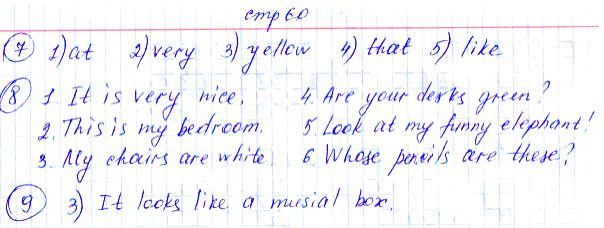 стр 60
7 1) at 2) very 3) yellow 4) that 5) like
8 1. It is very nice. 4. Are your desks green?
2. This is my bedroom. 5. Look at my funny elephant!
3. My chairs are white. 6. Whose pencils are these?
9 3) It looks like a musial box.